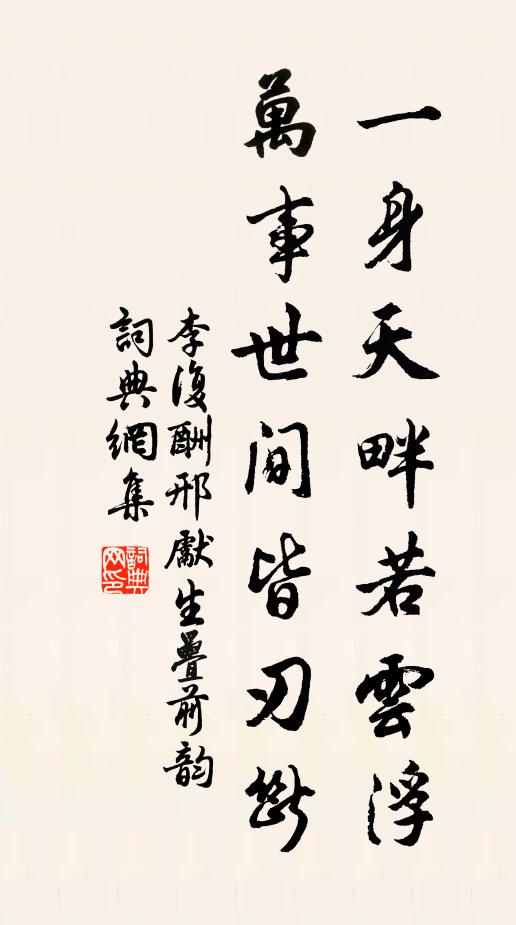 一身天畔若雲浮
萬事世間皆刃斷
李復酬邢獻生疊前韵
詞典網集
詞典网印